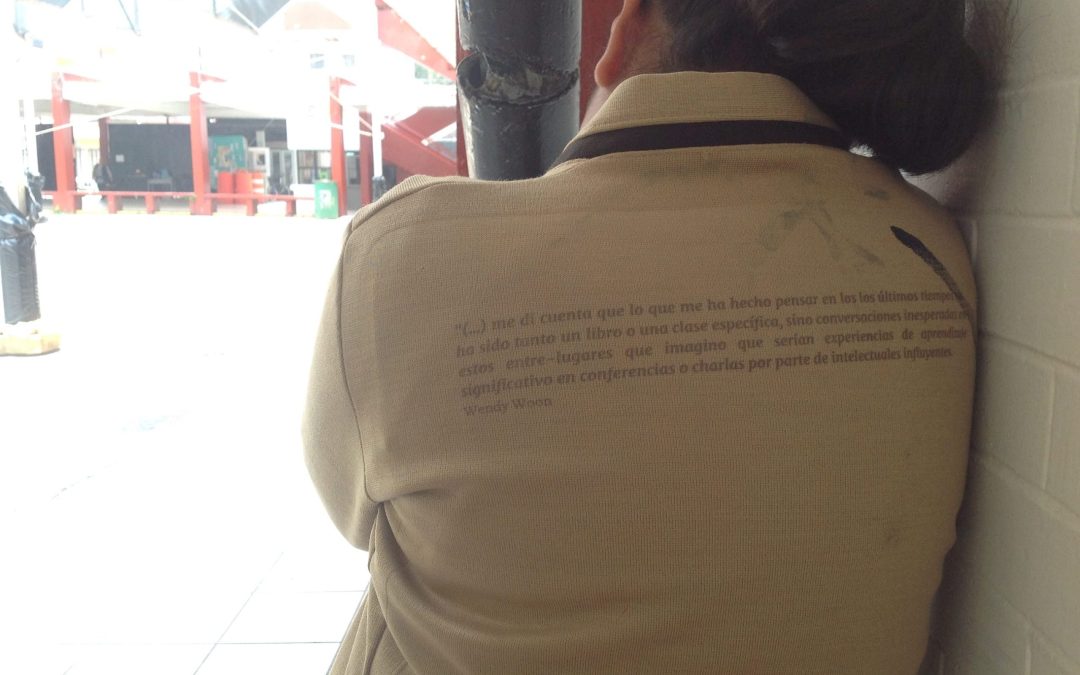 "(...) me di cuenta que lo que me ha hecho pensar en los los últimos tiempos no
ha sido tanto un libro o una clase específica, sino conversaciones inesperadas en
estos entre-lugares que imagino que serían experiencias de aprendizaje
significativo en conferencias o charlas por parte de intelectuales influyentes.
Wendy Woon